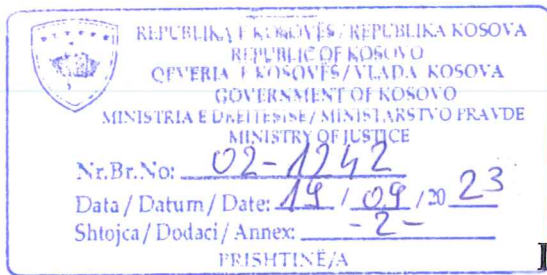 REPUBLIKA E KOSOVËS / REPUBLIKA KOSOVA
REPUBLIC OF KOSOVO
QEVERIA E KOSOVËS / VLADA KOSOVA
GOVERNMENT OF KOSOVO
MINISTRIA E DREJTËSISË / MINISTARSTVO PRAVDE
MINISTRY OF JUSTICE
Nr.Br.No: 02-1242
Data / Datum / Date: 19 / 09 / 20 23
Shtojca / Dodaci / Annex: -2-
PRISHTINË/A